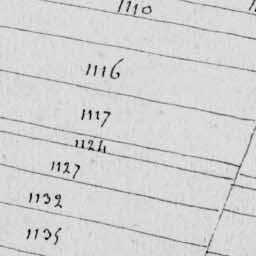 1110
1116
1117
1124
1127
1132
1135